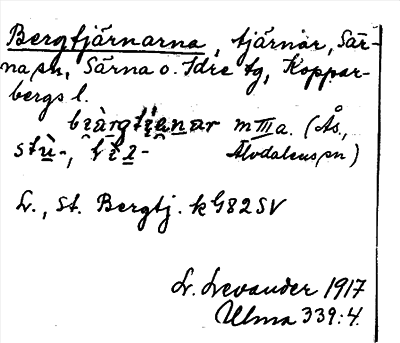 Bergtjärnarna, tjärnar, Sär-
na sn, Särna o. Idre tg, Koppar-
bergs l.
m III a. (Ås.,
Älvdalens sn)
L., St. Bergtj. k G82 SV
L. Levander 1917
Ulma 339:4.